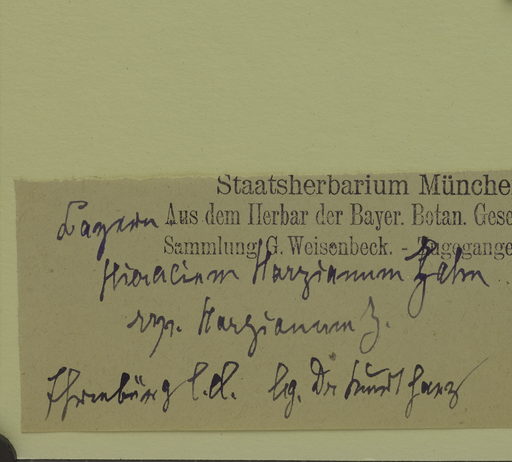 Staatsherbarium Münche
Bayern Aus dem Herbar der Bayer. Botan. Gese
Sammlung G. Weisenbeck. - Zugegange
Hieracium Harzianum Zahn
ssp. Harzianum Z.
Ehrenbürg l.d. lg. Dr Kurt Harz